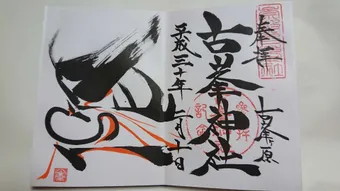 奉拝
古峯原
古峯神社
平成三十年
月十日